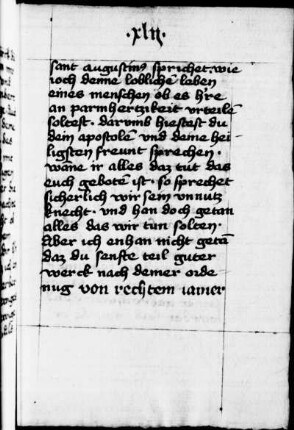 ·xlij·
sant augustinus sprichet. wie
ioch deinne lobliche͂ leben
eines menschen ob es h're
an parmhertzikeit vrteile͂
soltest. darumb hiestest du
dein apostole͂ vnd deine hei¬
ligsten freunt sprechen·
wane ir alles daz tut das
euch gebote͂ ist· so sprechet
sicherlich wir sein vnnutz
knecht· vnd han doch getan
alles das wir tun solten·
Aber ich enhan nicht geta͂
daz du senfte teil guter
werck nach deiner orde¬
nug von rechtem iamer